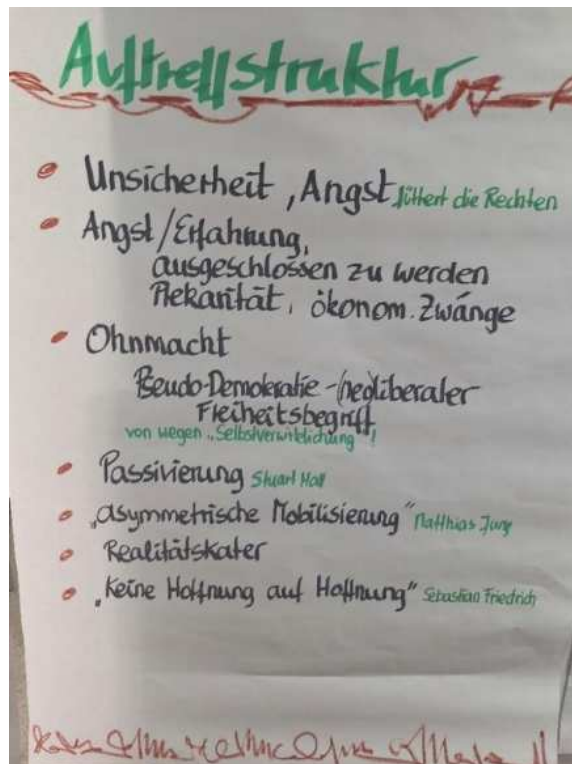 Auftreffstruktur
Unsicherheit, Angst füttert die Rechten
Angst/Erfahrung,
ausgeschlossen zu werden
Prekarität, ökonom. Zwänge
Ohnmacht
Pseudo-Demokratie - (neo)liberaler
Freiheitsbegriff
von wegen „Selbstverwirklichung"!
Passivierung Stuart Hall
„asymmetrische Mobilisierung" Matthias Jung
Realitätskater
„Keine Hoffnung auf Hoffnung" Sebastian Friedrich